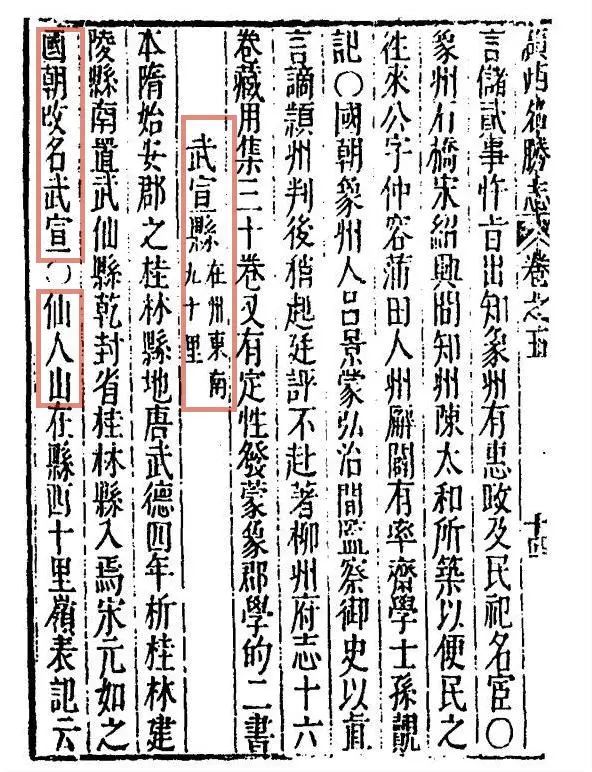 廣西名勝志 卷之五 十四
言儲貳事忤旨出知象州有惠政及民祀名宦〇
象州石橋宋紹興間知州陳太和所築以便民之
往來公字仲容蒲田人州廨閣有率齋學士孫覿
記〇國朝象州人呂景蒙弘治間監察御史以直
言謫潁州判後稍起廷評不赴著柳州府志十六
卷藏用集三十卷又有定性發蒙象郡學的二書
武宣縣 在州東南九十里
本隋始安郡之桂林縣地唐武德四年析桂林建
陵縣南置武仙縣乾封省桂林縣入焉宋元如之
國朝改名武宣〇仙人山在縣西十里嶺表記云